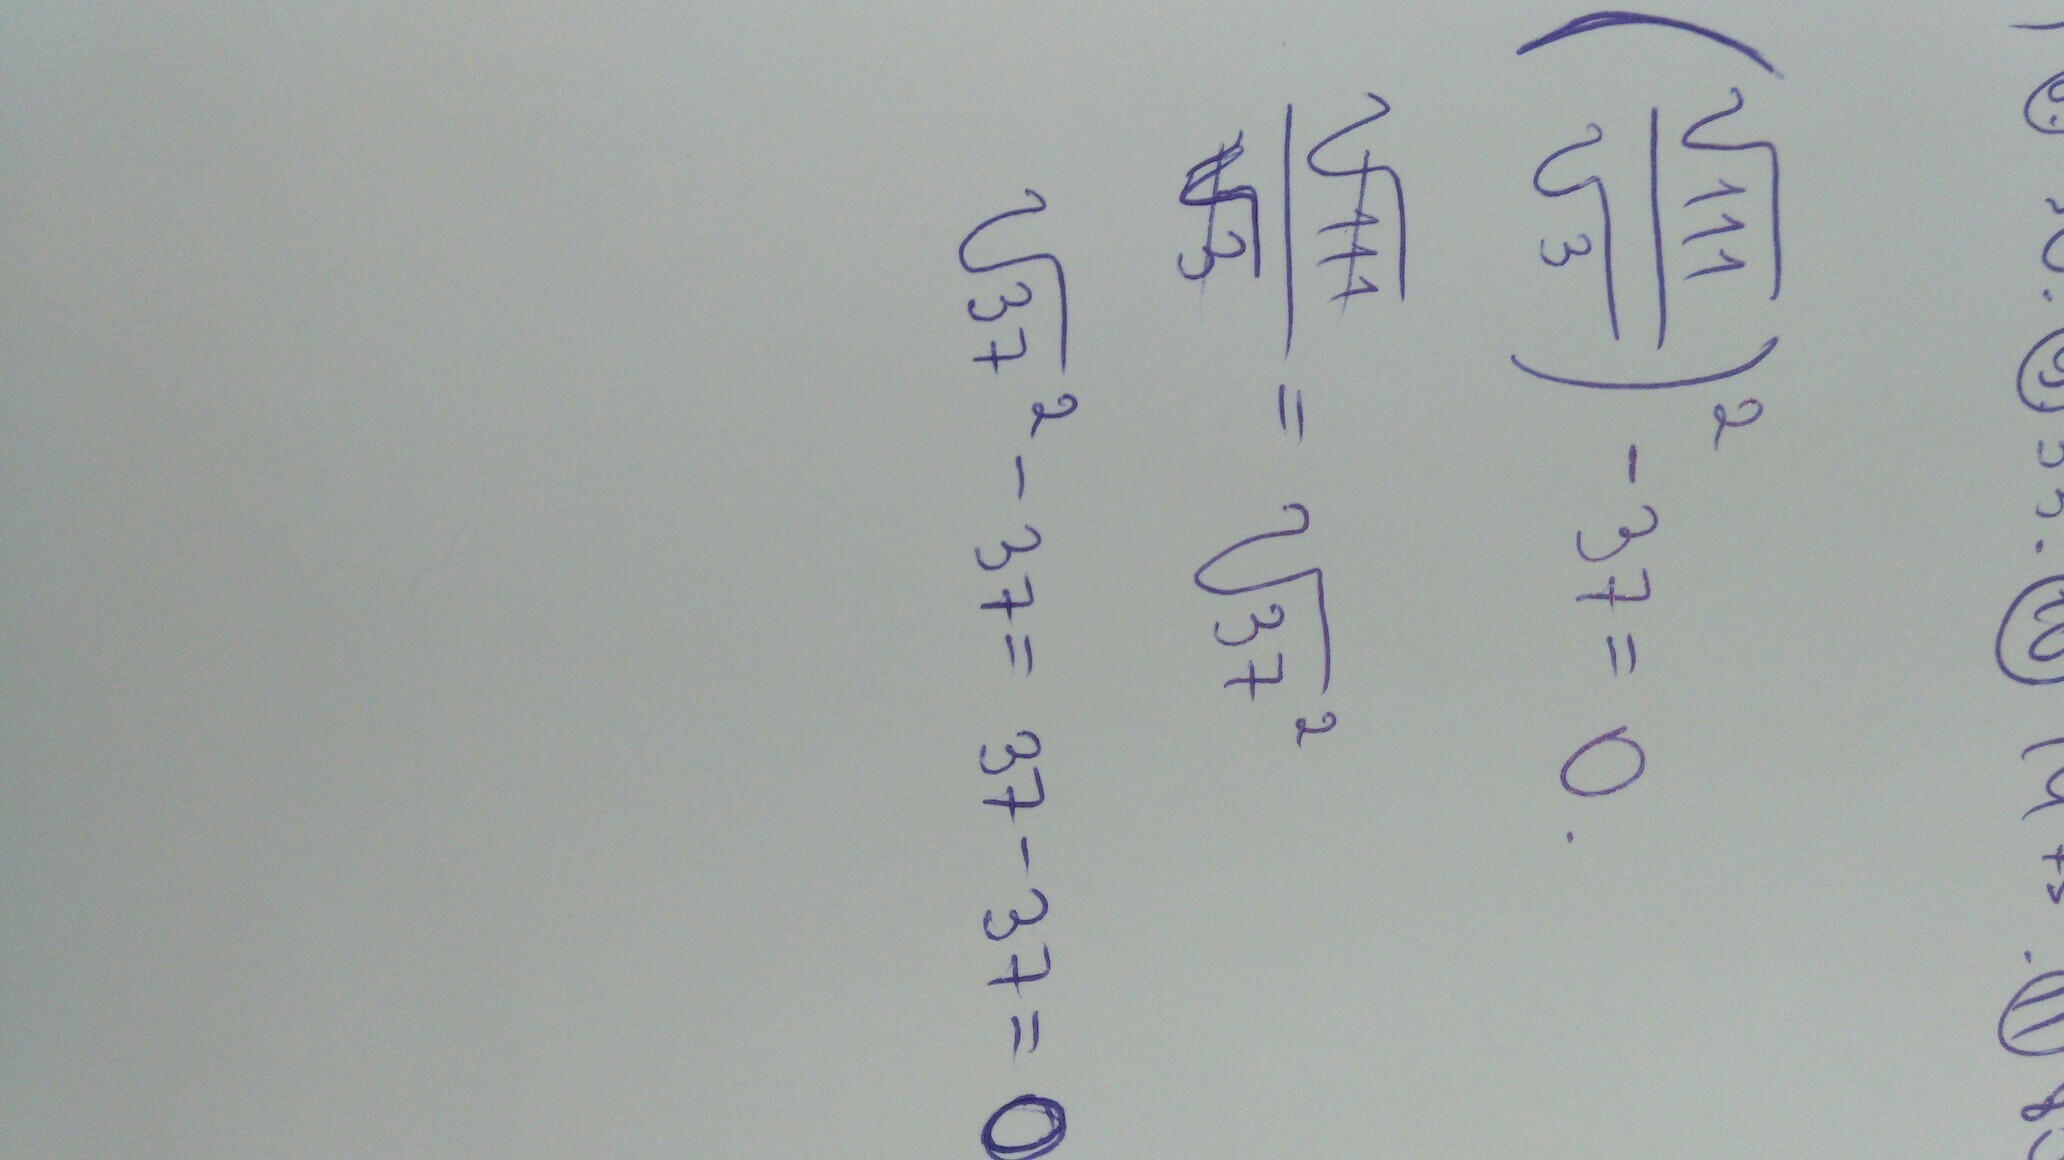 (√111/√3)² - 37 = 0.
√111/√3 = √37²
√37² - 37 = 37 - 37 = 0